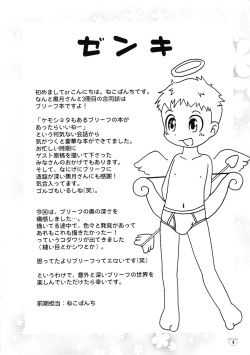 ゼンキ
初めましてor こんにちは。ねこぱんちです。
なんと黒月さんと3冊目の合同誌は
ブリーフ本ですよ！
「ケモショタもあるブリーフの本が
あったらいいねー」
という何気ない会話から
気がつくと豪華な本ができてました。
お忙しいところ
ゲスト原稿を描いて下さった
みなさんのおかげでもあります。
そして、なにげにブリーフに
造詣が深い黒月さんにも感謝！
気合入ってます。
ゴルゴもいるしね(笑)。
今回は、ブリーフの奥の深さを
痛感しました…。
描いてる途中で、色々と発見があって
あれもこれも描きたかったー！
っていうコダワリが出てきました
(縫い目とかシワとか)。
思ってたよりブリーフってエロいです(笑)
というわけで、意外と深いブリーフの世界を
楽しんでいただけたら幸いです。
前期担当：ねこぱんち
4